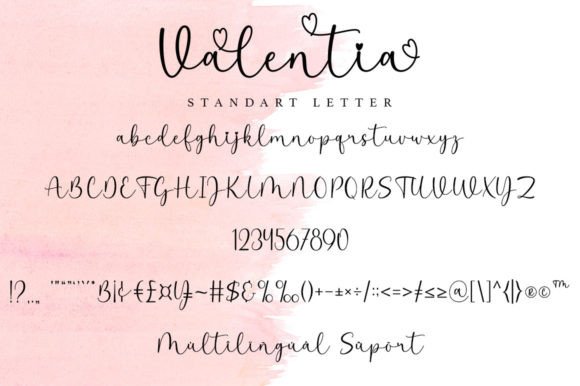 Valentia
STANDART LETTER
abcdefghijklmnopqrstuvwxyz
ABCDEFGHIJKLMNOPQRSTUVWXYZ
1234567890
!?,.,„ '"“”‘’`´° ß¡¢€£¤¥~#$&%‰()+−±×÷/:;<=>≠≤≥@[\]^{|}®©™
Multilingual Saport